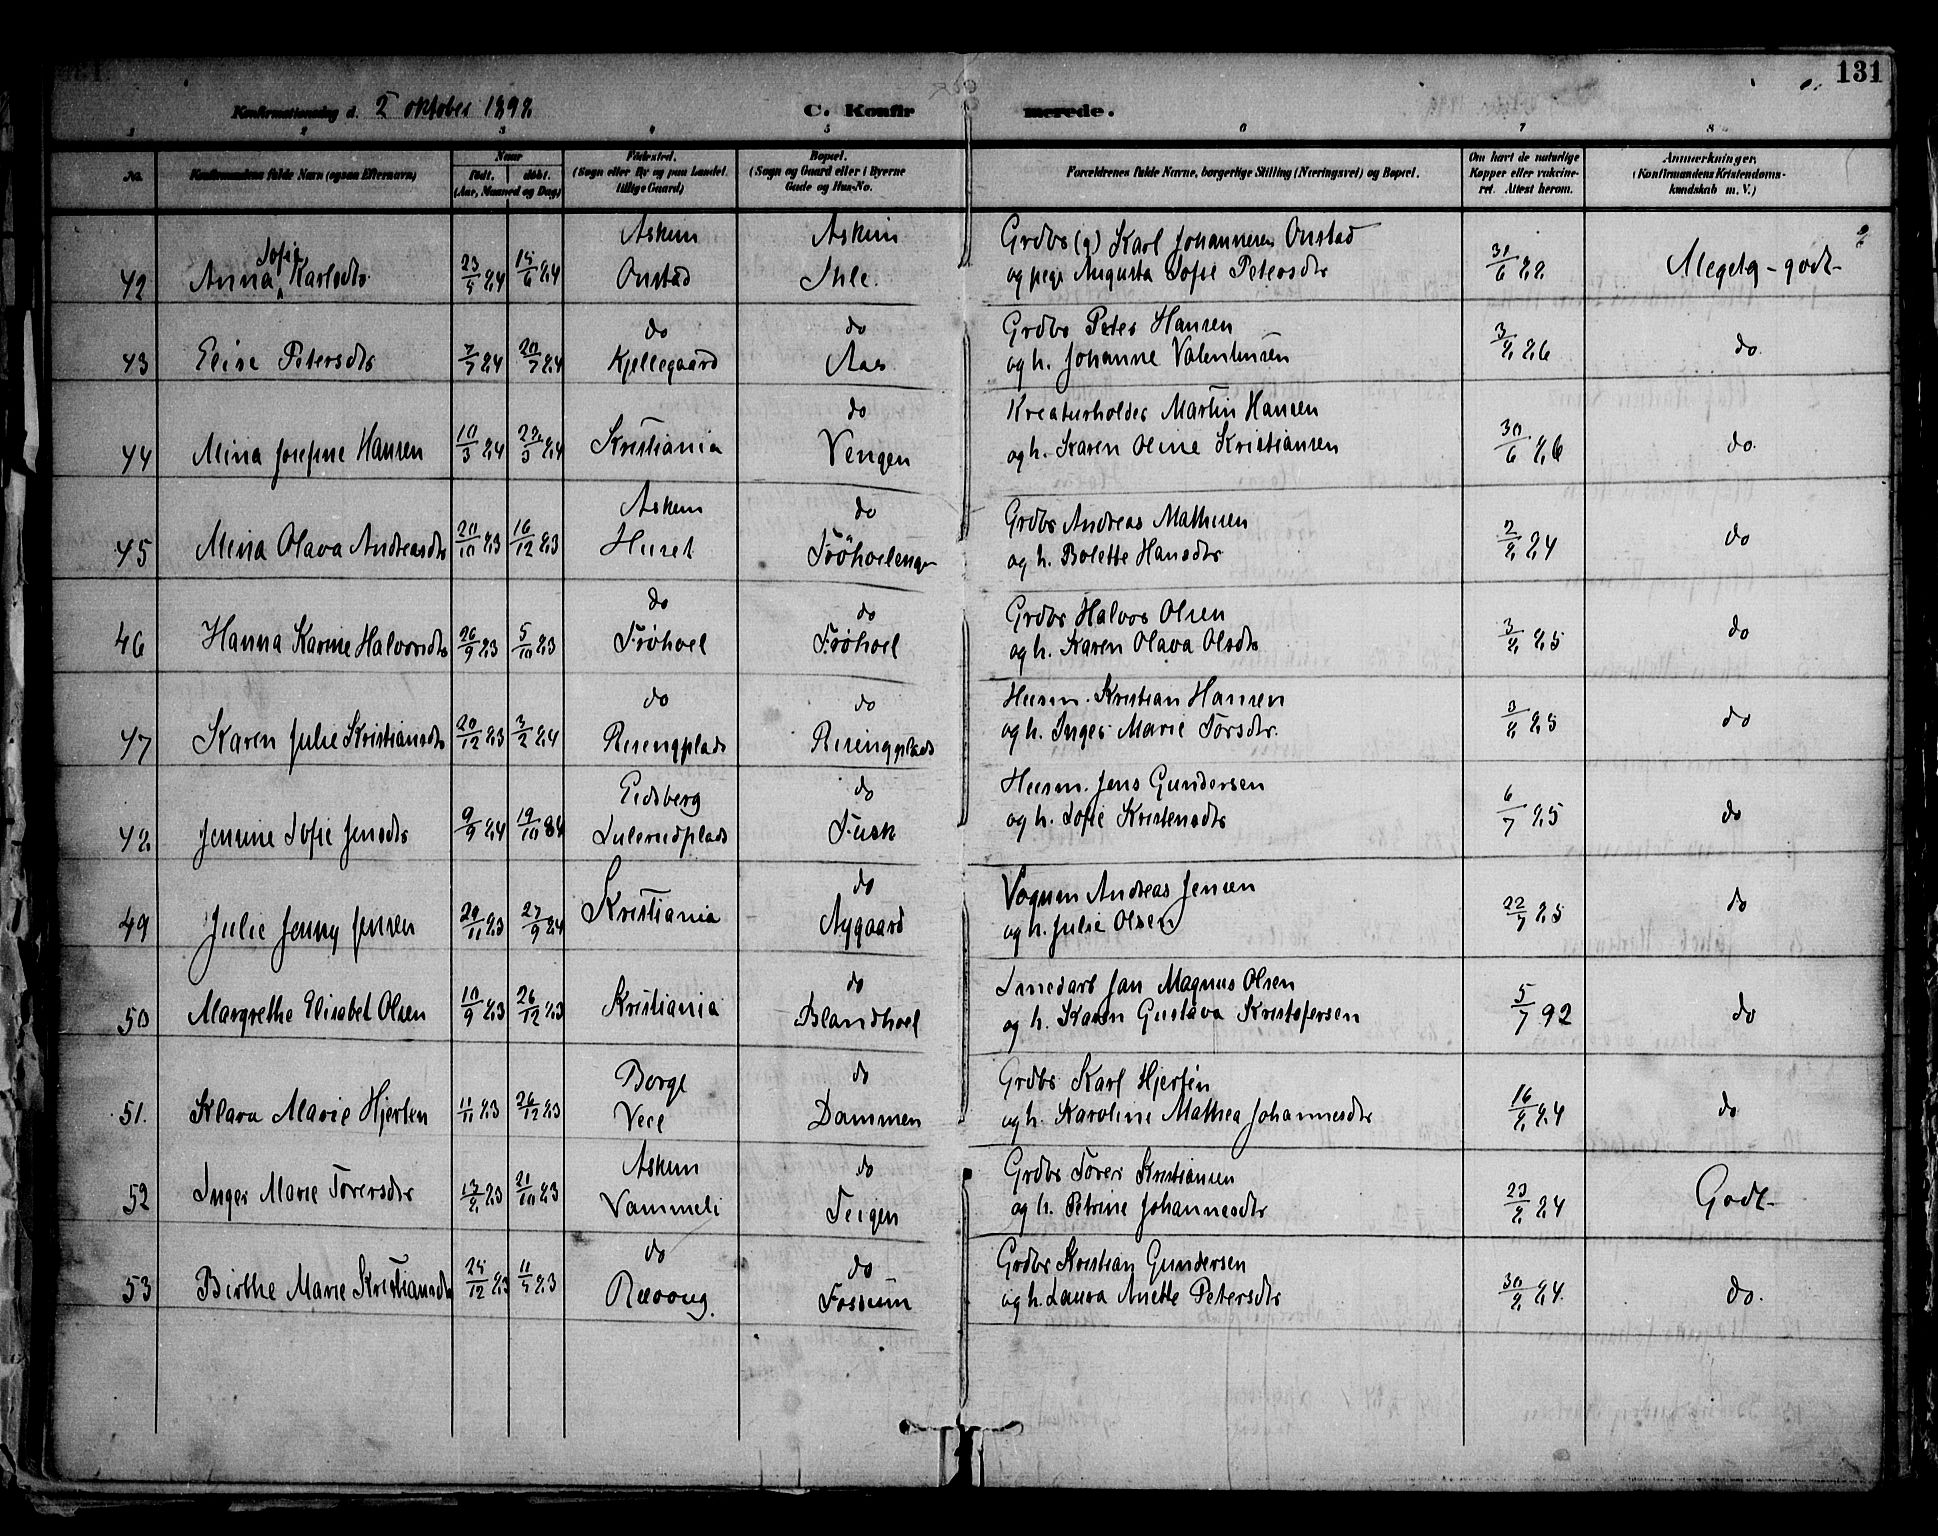 131
Konfirmationsdag d. 2 oktober 1898 C. Konfirmerede.
1 2 3 4 5 6 7 8
No. Konfirmandens fulde Navn (ogsaa Efternavn) Naar født. døbt. (Aar, Maaned og Dag) Fødested. (Sogn eller By og paa Landet tillige Gaard) Bopæl. (Sogn og Gaard eller i Byerne Gade og Hus-No. Forældrenes fulde Navne, borgerlige Stilling (Næringsvei) og Bopæl. Om havt de naturlige Kopper eller vakcineret. Attest herom. Anmærkninger. (Konfirmandens Kristendomskundskab m. V.)
Sofie Askim Askim Grdbr (g) Karl Johannesen Onstad
42 Anna Karlsdtr 23/5 84 15/6 84 Onstad Ihle. og pige Augusta Sofie Petersdtr 31/6 88 Megetg-godt-
do do Grdbr Peter Hansen
43 Elise Petersdtr 7/7 84 20/7 84 Kjellegaard Aas og h. Johanne Valentinsen 3/8 86 do.
do Kreaturholder Martin Hansen
44 Mina Josefine Hansen 10/3 84 23/3 84 Kristiania Vengen og h. Karen Oline Kristiansen 30/6 86 do.
Askim do Grdbr Andreas Mathisen
45 Mina Olava Andreasdtr 20/10 83 16/12 83 Huset Fröhoelenge og h. Bolette Hansdtr 2/8 84 do
do do Grdbr Halvor Olsen
46 Hanna Karine Halvorsdtr 26/9 83 5/10 83 Fröhoel Fröhoel og h. Karen Olava Olsdtr 3/8 85 do
do do Husm. Kristian Hansen
47 Karen Julie Kristiansdtr 20/12 83 3/2 84 Risengplads Risingplads og h. Inger Marie Torsdtr. 3/8 85 do
Eidsberg do Husm. Jens Gundersen
48 Jensine Sofie Jensdtr 9/9 84 19/10 84 Lulerudplads Fusk og h. Sofie Kristensdtr 6/7 85 do
do Vognm Andreas Jensen
49 Julie Jenny Jensen 29/11 83 27/9 84 Kristiania Nygaard og h. Julie Olsen 22/7 85 do
do Smedarb Jan Magnus Olsen
50 Margrethe Elisabet Olsen 10/9 83 26/12 83 Kristiania Blandhoel og h. Karen Gustava Kristofersen 5/7 92 do
Borge do Grdbr Karl Hjertén
51. Klara Marie Hjerten 11/11 83 26/12 83 Dammen og h. Karoline Mathea Johannesdtr 16/8 84 do
Askim do Grdbr Torer Kristiansen
52 Inger Marie Torersdtr 13/8 83 21/10 83 Vammeli Teigen og h. Petrine Johannesdtr 23/8 84 Godt-
do do Grdbr Kristian Gundersen
53 Birthe Marie Kristiansdtr 25/12 83 83 Fossum og h. Laura Anette Petersdtr 30/8 84. do.